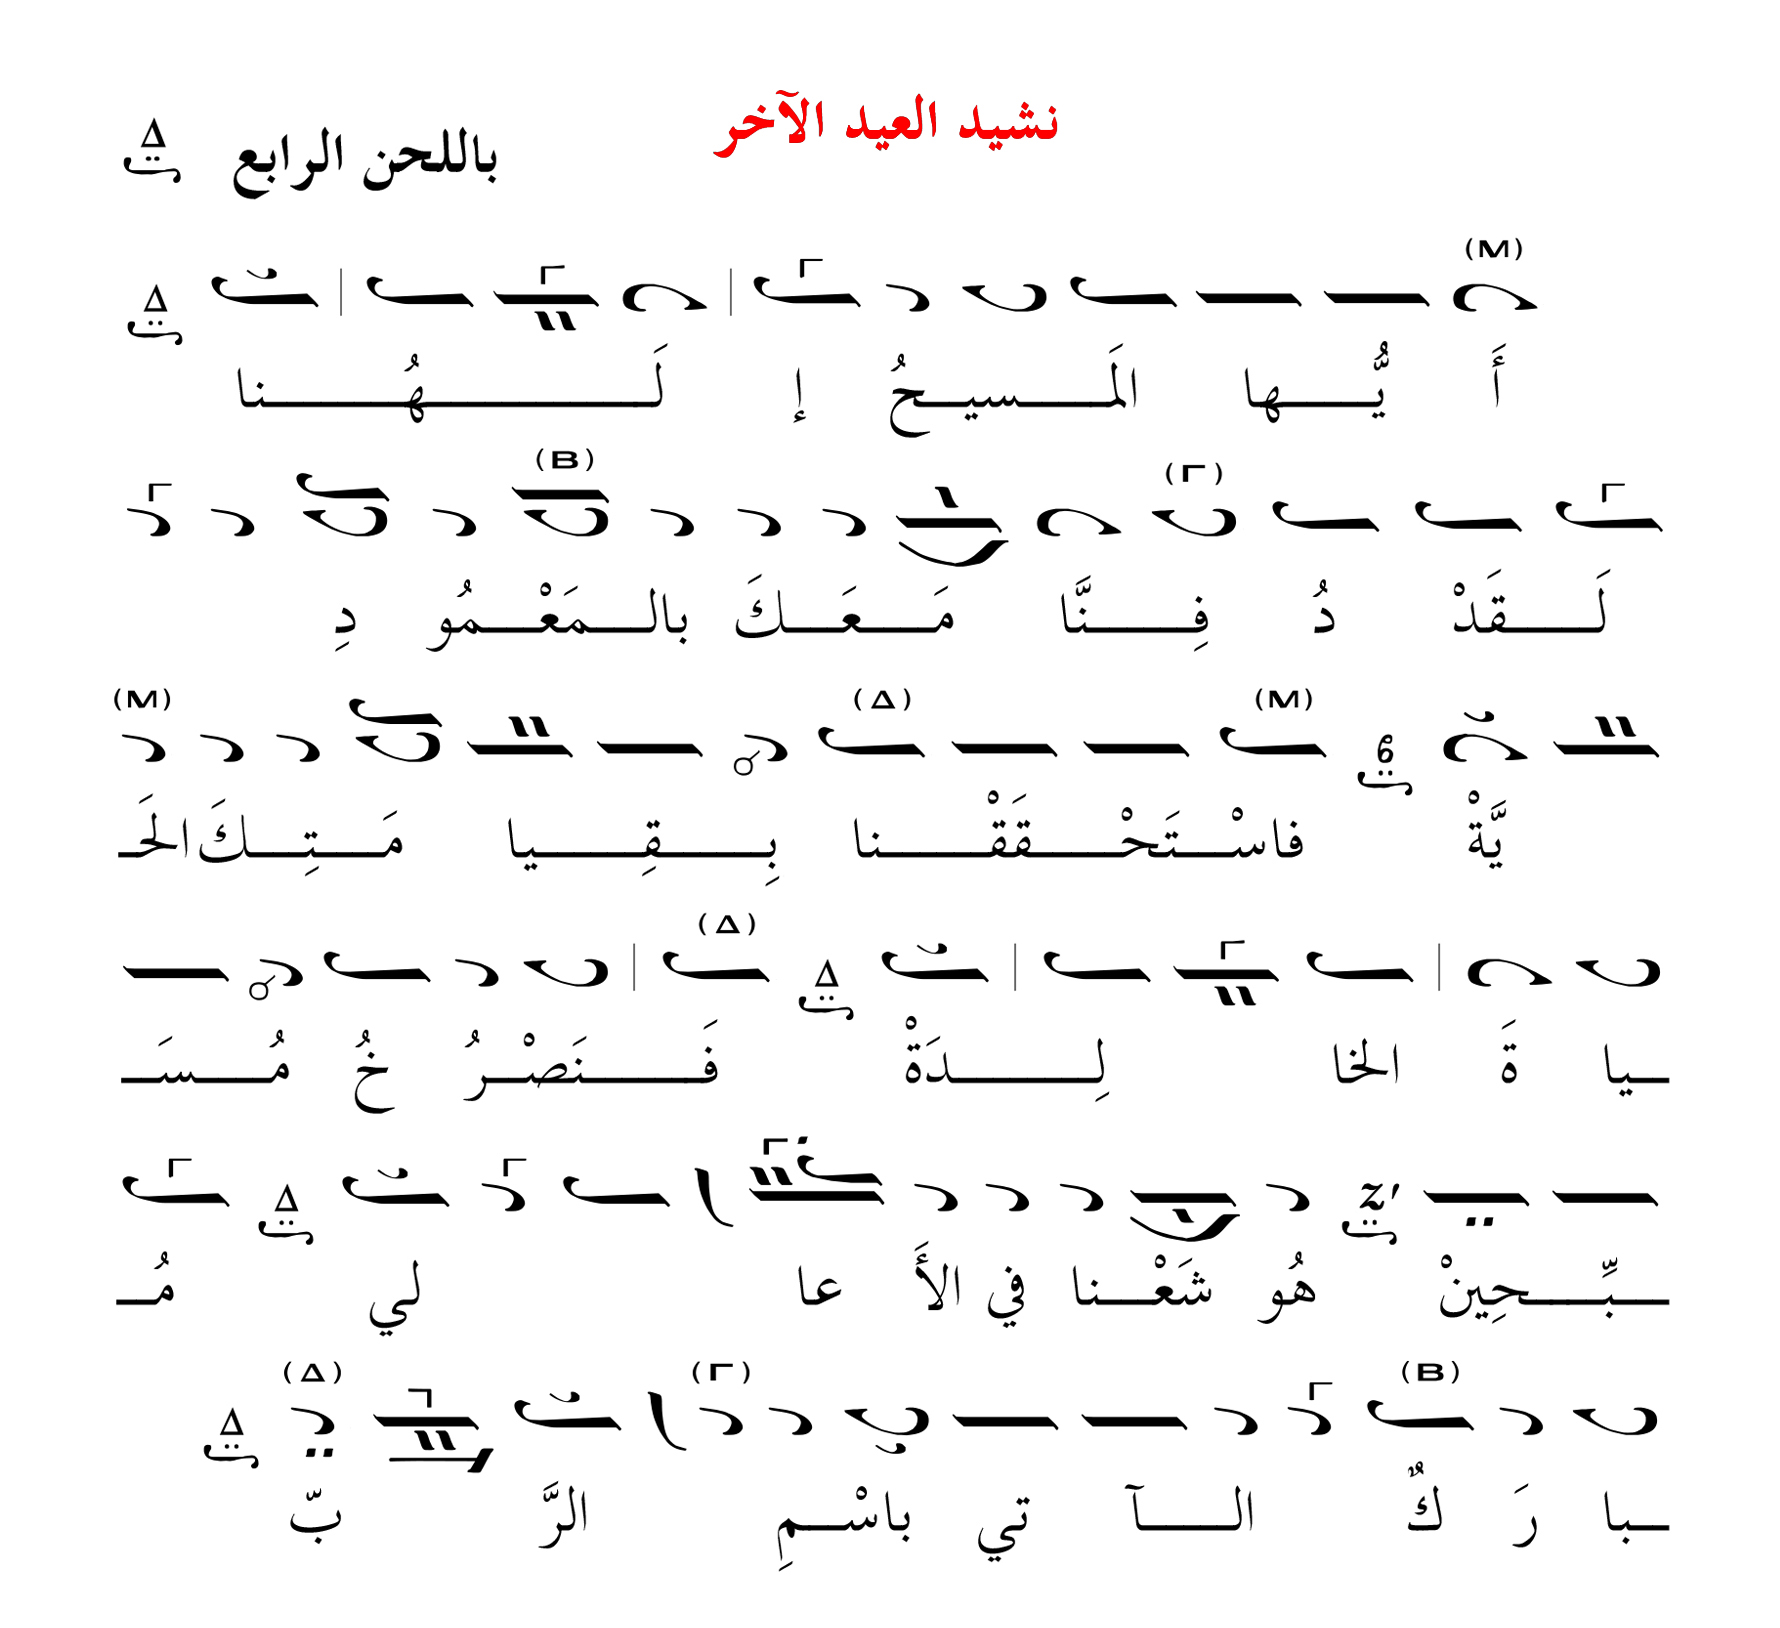 نشيد العيد الآخر
باللحن الرابع Δ
(M)
أَ يُّـــها المَـــسيـحُ إ لَـــــهُـــــنا
(Γ) (B)
لَـــقَدْ دُ فِـــنَّا مَـــعَـــكَ بالـــمَعْـــمُو دِ
(M) (Δ) (M)
يَّةْ فاسْـــتَحْـــقَقْـــنا بِـــقِـــيا مَـــتِـــكَ الحَـ
(Δ)
ـيا ةَ الخا لِـــدَةْ فَـــنَصْـــرُ خُ مُـــسَـ
ـبِّـــحِينْ هُو شَعْـــنا في الأَ عا لي مُـ
(B) (Γ) (Δ)
ـبا رَ كٌ الـــآ تي باسْـــمِ الرَّ بّ